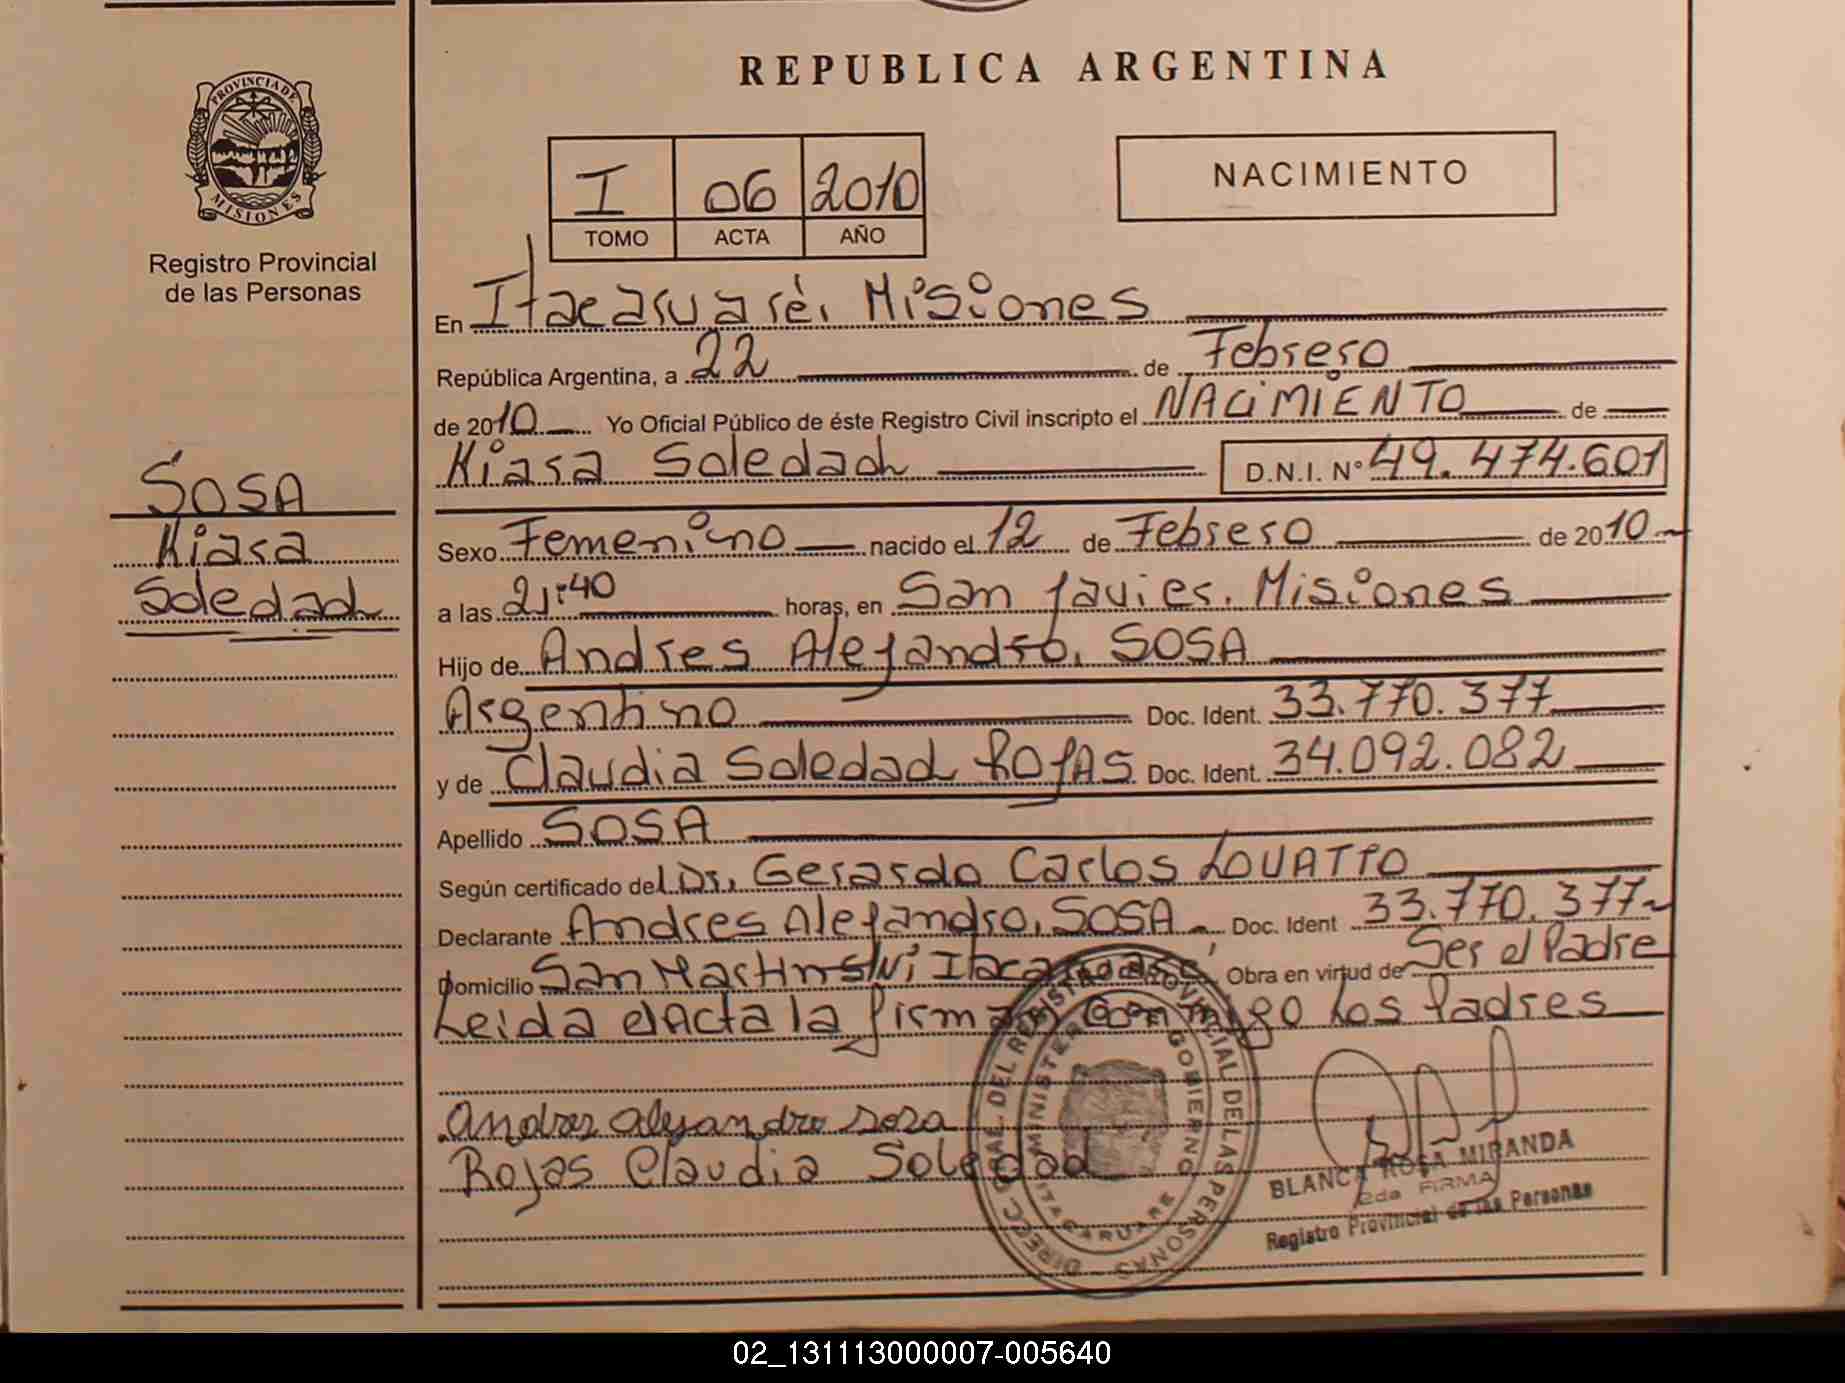 REPUBLICA ARGENTINA
PROVINCIA DE MISIONES
Registro Provincial
de las Personas
I 06 2010
TOMO ACTA AÑO
NACIMIENTO
En Itacaruaré, Misiones
República Argentina, a 22 de Febrero
de 2010 Yo Oficial Público de éste Registro Civil inscripto el NACIMIENTO de
Kiara Soledad D.N.I. N° 49.474.601
SOSA
Kiara
Soledad
Sexo Femenino nacido el 12 de Febrero de 2010
a las 21:40 horas, en San Javier, Misiones
Hijo de Andres Alejandro, SOSA
Argentino Doc. Ident. 33.770.377
y de Claudia Soledad ROJAS Doc. Ident. 34.092.082
Apellido SOSA
Según certificado del Dr. Gerardo Carlos LOVATTO
Declarante Andres Alejandro, SOSA Doc. Ident 33.770.377
Domicilio San Martin s/n, Itacaruaré, Obra en virtud de Ser el Padre
Leida el Acta la firman conmigo los Padres
Andres Alejandro Sosa
Rojas Claudia Soledad
DIRECC. GRAL. DEL REGISTRO PROVINCIAL DE LAS PERSONAS
MINISTERIO GOBIERNO
ITACARUARE
BLANCA ROSA MIRANDA
2da FIRMA
Registro Provincial de las Personas
02_131113000007-005640